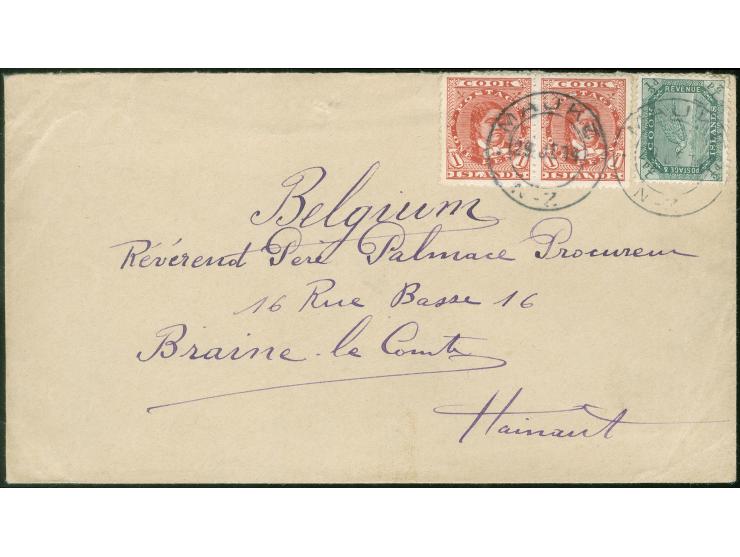 COOK COOK
POSTAGE POSTAGE
ISLANDS ISLANDS
REVENUE
COOK ISLANDS
POSTAGE &
MAUKE
N-Z
MAUKE
N-Z
Belgium
Révérend Père Palmace Procureur
16 Rue Basse 16
Braine-le Comte
Hainaut